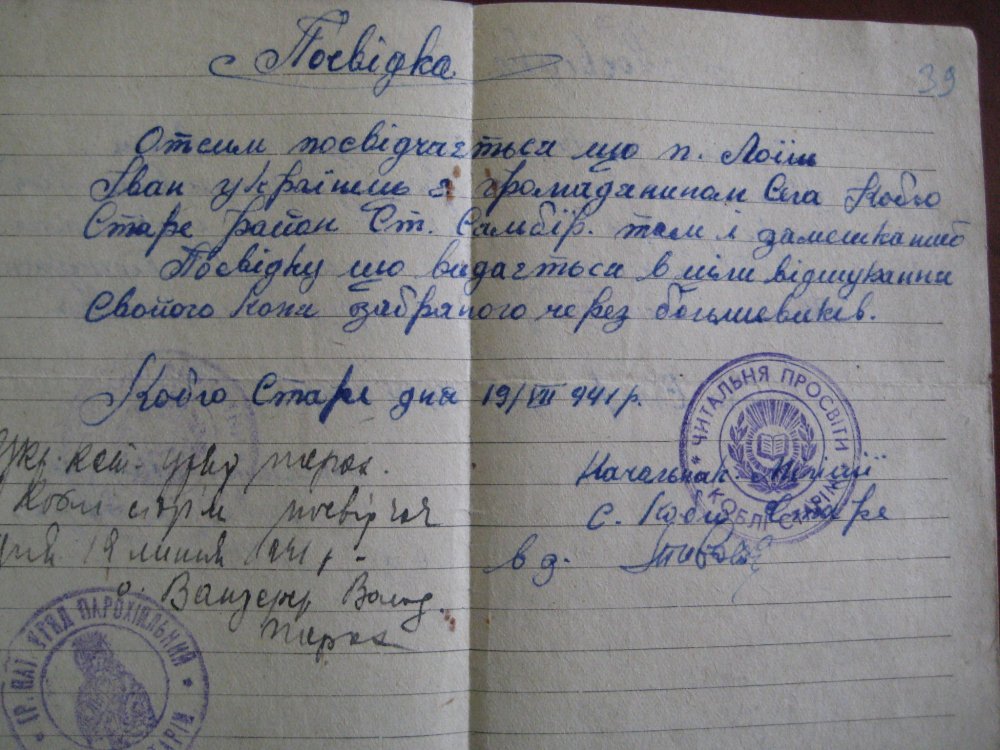 Посвідка
39
Отсим посвідчається що п. Лоїш
Іван українець є громадянином Села Кобло
Старе район Ст. Самбір. там і замешкалий
Посвідку цю видається в ціли відшукання
Свойого коня забраного через большевиків.
Кобло Старе дня 19/VII 941 р.
ЧИТАЛЬНЯ ПРОСВІТИ
КОБЛІ СТАРІМ
Начальник
с. Кобло Старе
в з.
Укр. кат. уряд парох.
Кобли старім посвідчає
дня 19 липня 1941 р.
о. Волод.
парох
ГР. КАТ. УРЯД ПАРОХІЯЛЬНИЙ